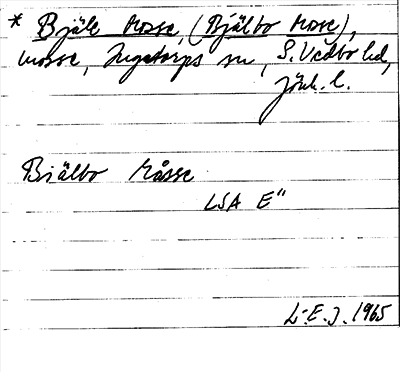 * Bjäle Mosse, (Bjälbo Mosse),
mosse, Ingatorps sn, S. Vedbo hd,
Jönk. l.
Bjälbo Måsse
LSA E"
L-E. J. 1965